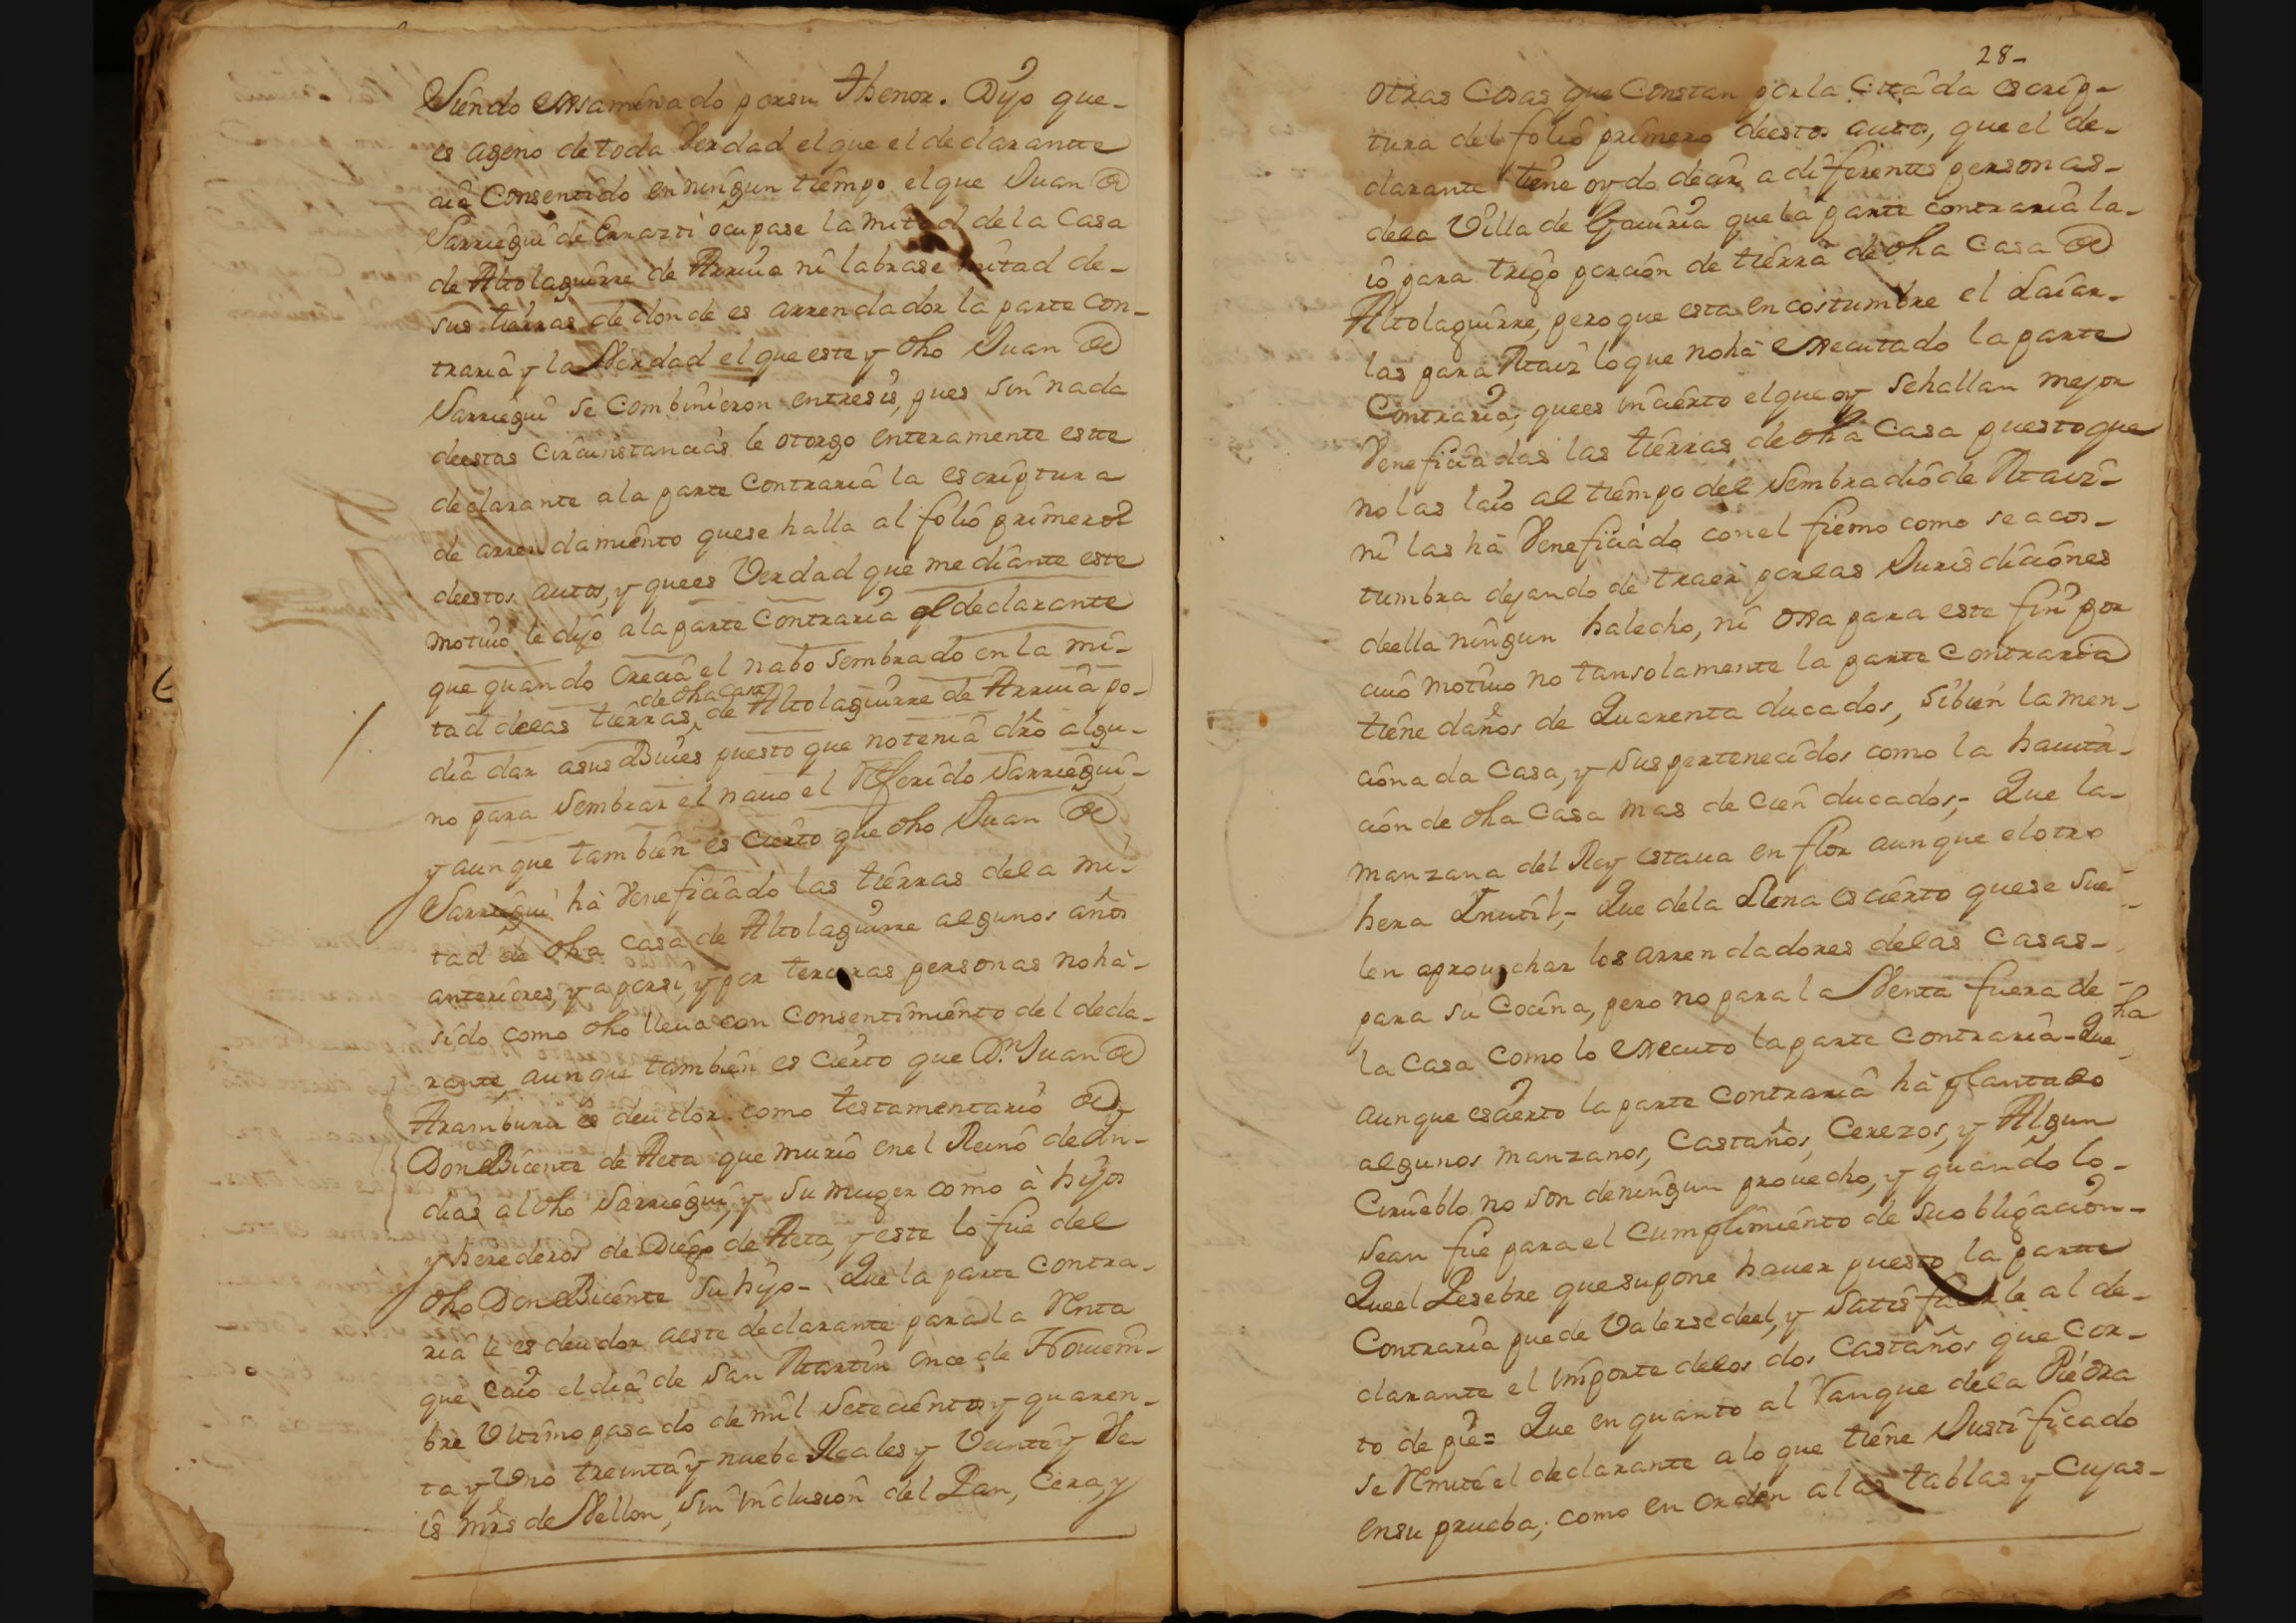 Siendo exsaminado por su thenor. Dijo que-
es ageno de toda Verdad el que el declarante
aia Consentido en ningun tiempo el que Juan de
Sarriegui de Ernazti ocupase la mitad de la Casa
de Altolaguirre de Arriua ni labrase mitad de-
sus tierras de donde es arrendador la parte con-
traria y la Verdad el que este y dho Juan de
Sarriegui se combinieron entre sis, pues sin nada
de estas Circunstancias le otorgo enteramente este
declarante a la parte Contraria la escriptura
de arrendamiento que se halla al folio primero
de estos autos, y que es Verdad que mediante este
motiuo le dijo a la parte Contraria el declarante
que quando Crecia el nabo sembrado en la mi-
tad de las tierras de dha Casa de Altolaguirre de Arriua po-
dia dar a sus Bueies puesto que no tenia dro algu-
no para sembrar el nauo el Referido Sarriegui,-
y aunque tambien es Cierto que dho Juan de
Sarriegui hà Veneficiado las tierras de la mi-
tad de dha casa de Altolaguirre algunos años
anteriores, y a por si, y por terceras personas no hà-
sido como dho lleua con Consentimiento del decla-
rante, aunque tambien es Cierto que Dn Juan de
Aramburu es deudor como testamentario de
Don Bicente de Aeta que murio en el Reino de In-
dias al dho Sarriegui, y su muger como à hijos
y herederos de Diego de Aeta, y este lo fue del
dho Don Bicente su hijo- Que la parte Contra-
ria le es deudor a este declarante para la Renta
que Caio el dia de San Martin once de Nouiem-
bre Ultimo pasado de mil Setecientos y quaren-
ta y Uno treinta y nuebe Reales y Veinte y Se-
is mrs de Vellon, sin inclusion del Pan, Cera, y
28-
otras Cosas que Constan por la Citada escrip-
tura del folio primero de estos autos, que el de-
clarante tiene oydo decir a diferentes personas-
de la Villa de Gauiria que la parte contraria la-
io para trigo porcion de tierra de dha Casa de
Altolaguirre, pero que esta en costumbre el Laiar-
las para Maiz lo que no hà executado la parte
Contraria; que es incierto el que oy se hallan mejor
Veneficiadas las tierras de dha Casa puesto que
no las laio al tiempo del sembradio de Maiz-
ni las hà Veneficiado con el fiemo como se acos-
tumbra dejando de traer por las Jurisdiciones
de ella ningun halecho, ni orra para este fin por
cuio motiuo no tansolamente la parte Contraria
tiene daños de Quarenta ducados, si bien la men-
cionada Casa, y sus pertenecidos como la hauita-
cion de dha Casa mas de cien ducados,- Que la-
manzana del Rey estaua en flor aunque el otro
hera Inutil,- Que de la Llena es cierto que se sue-
len aprouechar los arrendadores de las Casas-
para su Cocina, pero no para la Venta fuera de-
la Casa como lo executo la parte Contraria- Que
ha
aunque es cierto la parte Contraria hà plantado
algunos manzanos, Castaños, Cerezos, y Algun
Cirueblo no son de ningun prouecho, y quando lo-
sean fue para el Cumplimiento de su obligacion-
Que el Pesebre que supone hauer puesto la parte
Contraria puede Valerse de el, y satisfacerle al de-
clarante el importe de los dos Castaños que Cor-
to de pie= Que en quanto al Yanque de la Piedra
se Remite el declarante a lo que tiene Justificado
en su prueba; como en orden a las tablas y Cujas-